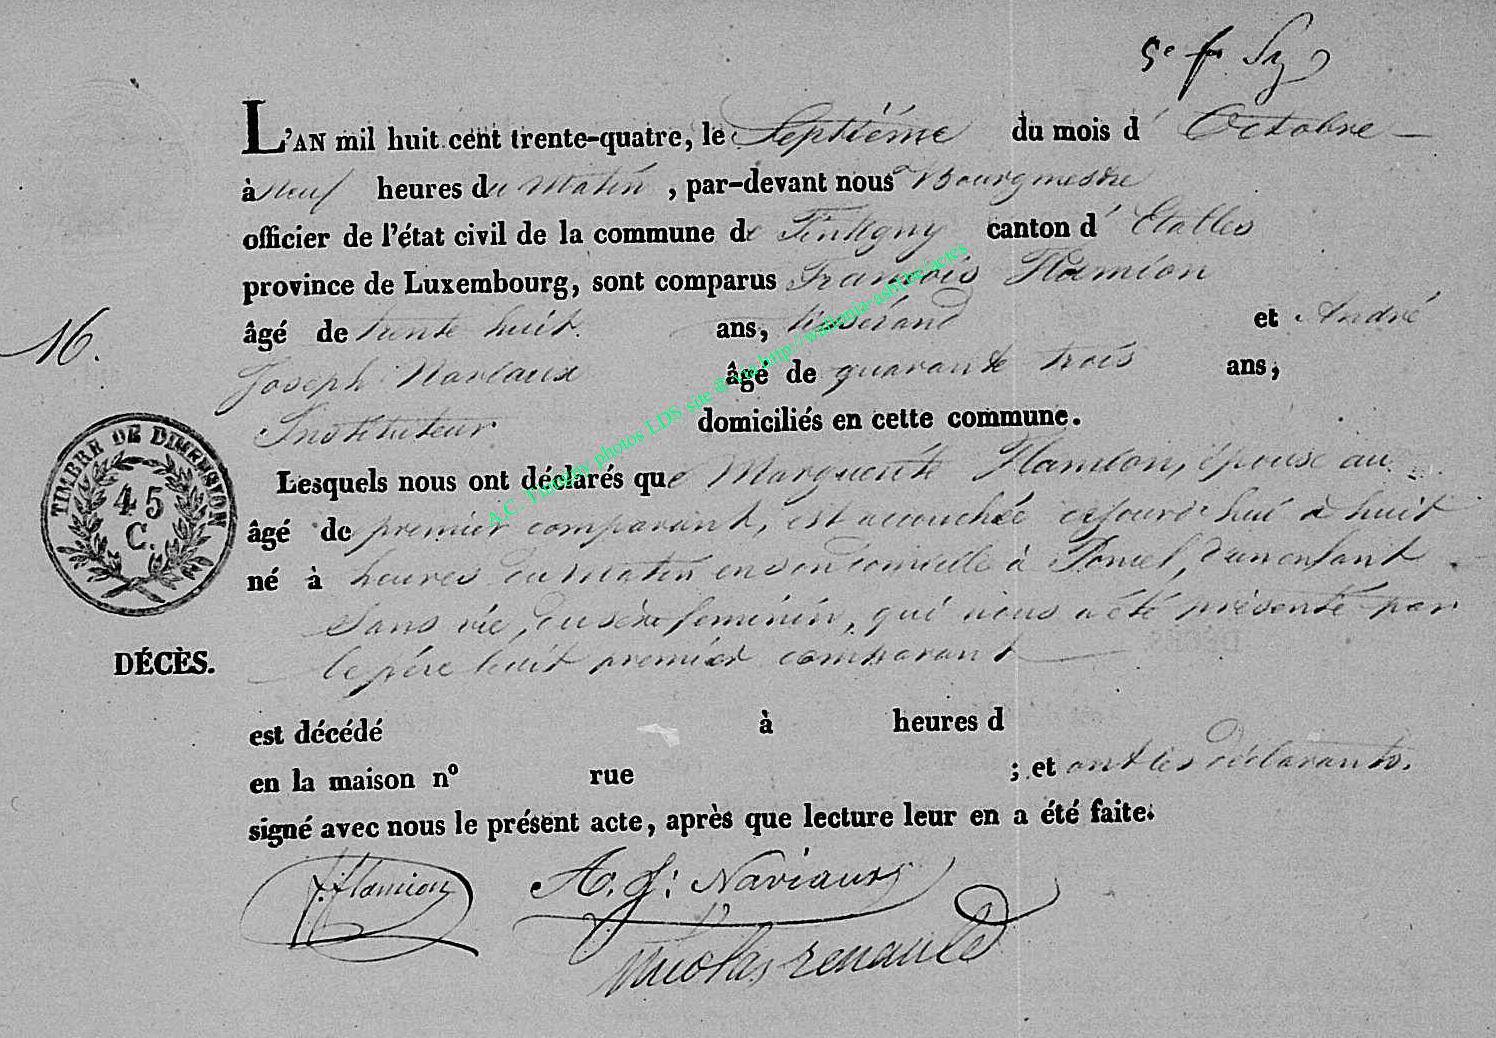 5e f
L'AN mil huit cent trente-quatre, le Septième du mois d' Octobre
à neuf heures du matin, par-devant nous Bourgmestre
officier de l'état civil de la commune de Tintigny canton d' Etalles
province de Luxembourg, sont comparus François Flamion
âgé de trente huit ans, tisserand et André
16.
Joseph Naviaux âgé de quarante trois ans,
Instituteur domiciliés en cette commune.
Lesquels nous ont déclarés que Marguerite Flamion, épouse au
âgé de premier comparant, est accouchée cejourd'hui à huit
né à heures du matin en son domicile à Poncel, d'un enfant
sans vie, du sexe feminin, qui nous a été présenté par
DÉCÈS. le père premier comparant
est décédé à heures d
en la maison no rue ; et ont les déclarants.
signé avec nous le présent acte, après que lecture leur en a été faite.
f. flamion A. J. Naviaux
Nicolas renauld
TIMBRE DE DIMENSION
45
C.
A.C. Tintigny photos LDS site ® via http://wallonia-asbl.be/actes